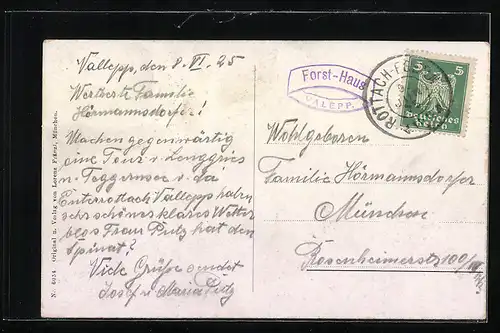 Vallepp, den 8. VI. 25
Werteste Familie
Hörmannsdorfer!
Machen gegenwärtig
eine Tour v. Lenggries
n. Teggernsee v. da
Enterrottach Vallepp haben
sehr schönes klares Wetter
blos Frau Putz hat den
Spinat?
Viele Grüße sendet
Josef u Maria Putz
N. 6034 Original u. Verlag von Lorenz Fränzl, München.
Forst-Haus
VALEPP.
ROTTACH-
5 5
Deutsches
Reich
Wohlgeboren
Familie Hörmannsdorfer
München
Rosenheimerstr 100/III